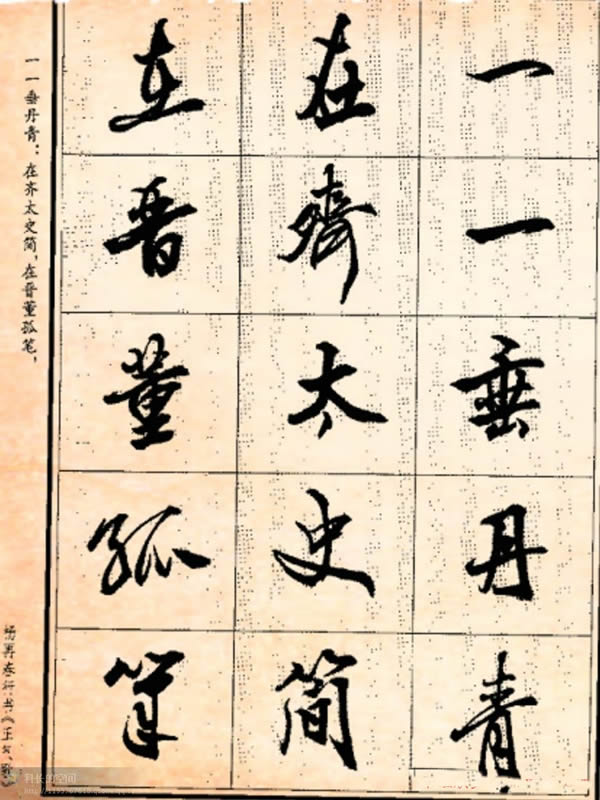 一一垂丹青
在齊太史简
在晋董孤筆
一一垂丹青：在齐太史简，在晋董孤笔，
杨再春行书《正气歌》
科长的空间